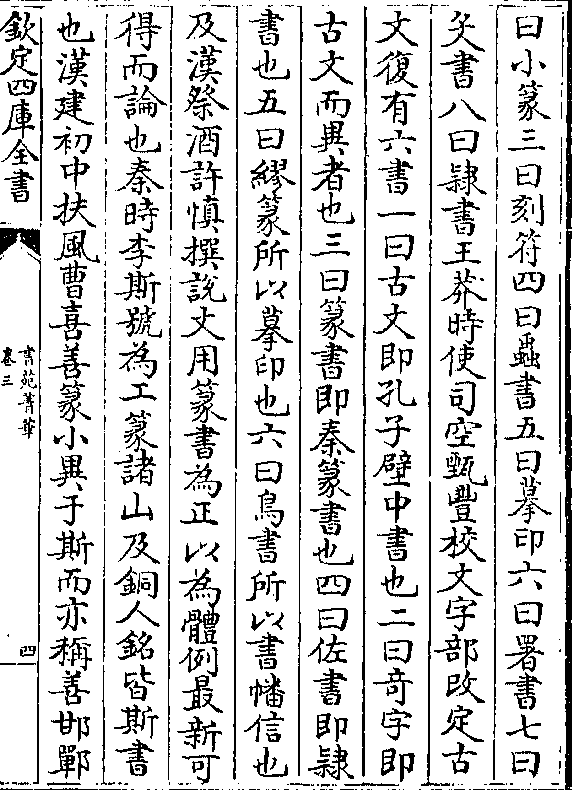 曰小篆三曰刻符四曰蟲書五曰摹印六曰署書七曰
殳書八曰隸書王莽時使司空甄豐校文字部改定古
文復有六書一曰古文即孔子壁中書也二曰竒字即
古文而異者也三曰篆書即秦篆書也四曰佐書即隸
書也五曰繆篆所以摹印也六曰鳥書所以書幡信也
及漢祭酒許慎撰說文用篆書為正以為體例最新可
得而論也秦時李斯號為工篆諸山及銅人銘皆斯書
也漢建初中扶風曹喜善篆小異于斯而亦稱善邯鄲
欽定四庫全書
書苑菁華
卷三
四